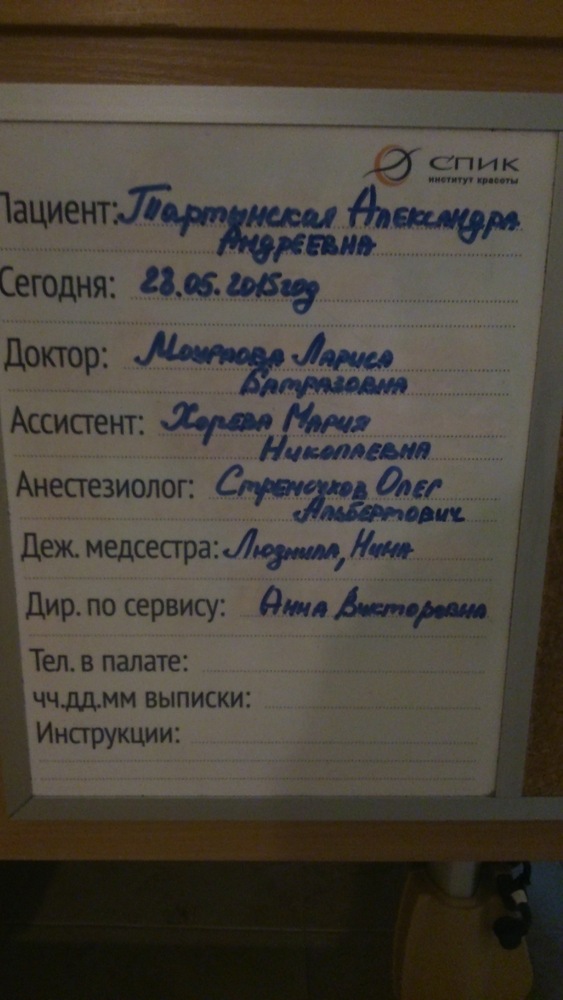 СПИК
институт красоты
Пациент: Тартынская Александра
Андреевна
Сегодня: 28.05.2015год
Доктор: Моураова Лариса
Батразовна
Ассистент: Хорева Мария
Николаевна
Анестезиолог: Стреночков Олег
Альбертович
Деж. медсестра: Людмила, Нина
Дир. по сервису: Анна Викторовна
Тел. в палате:
чч.дд.мм выписки:
Инструкции: